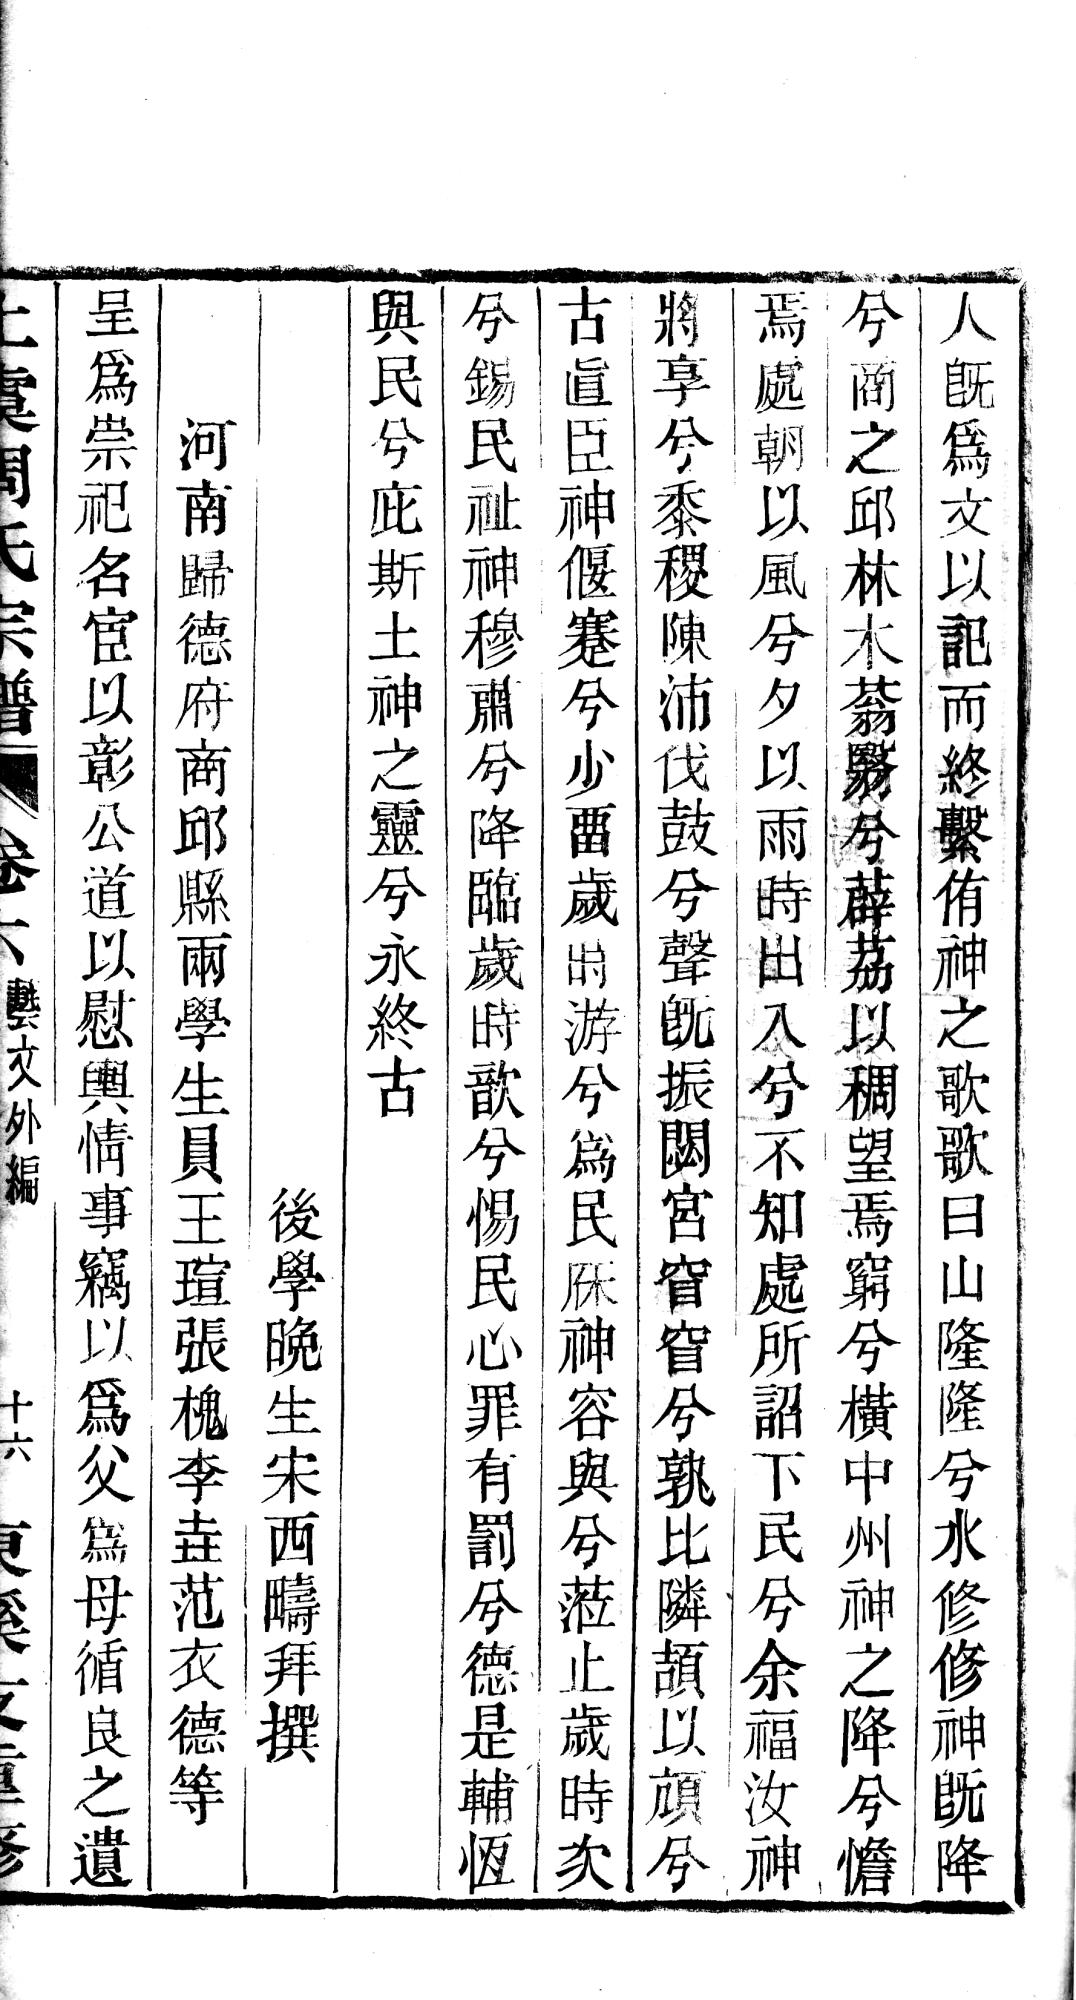 人既爲文以記而終繫侑神之歌歌曰山隆隆兮水修修神既降
兮商之邱林木蓊翳兮薜荔以稠望焉窮兮橫中州神之降兮憺
焉處朝以風兮夕以雨時出入兮不知處所詔下民兮余福汝神
將享兮黍稷陳沛伐鼓兮聲既振閟宮窅窅兮孰比隣頡以頏兮
古眞臣神偃蹇兮少畱歲時游兮爲民庥神容與兮蒞止歲時次
兮錫民祉神穆肅兮降臨歲時歆兮惕民心罪有罰兮德是輔恆
與民兮庇斯土神之靈兮永終古
後學晚生宋西疇拜撰
河南歸德府商邱縣兩學生員王瑄張槐李垚范衣德等
呈爲崇祀名宦以彰公道以慰輿情事竊以爲父爲母循良之遺
上虞周氏宗譜 卷六 藝文外編 十六 東溪支重修